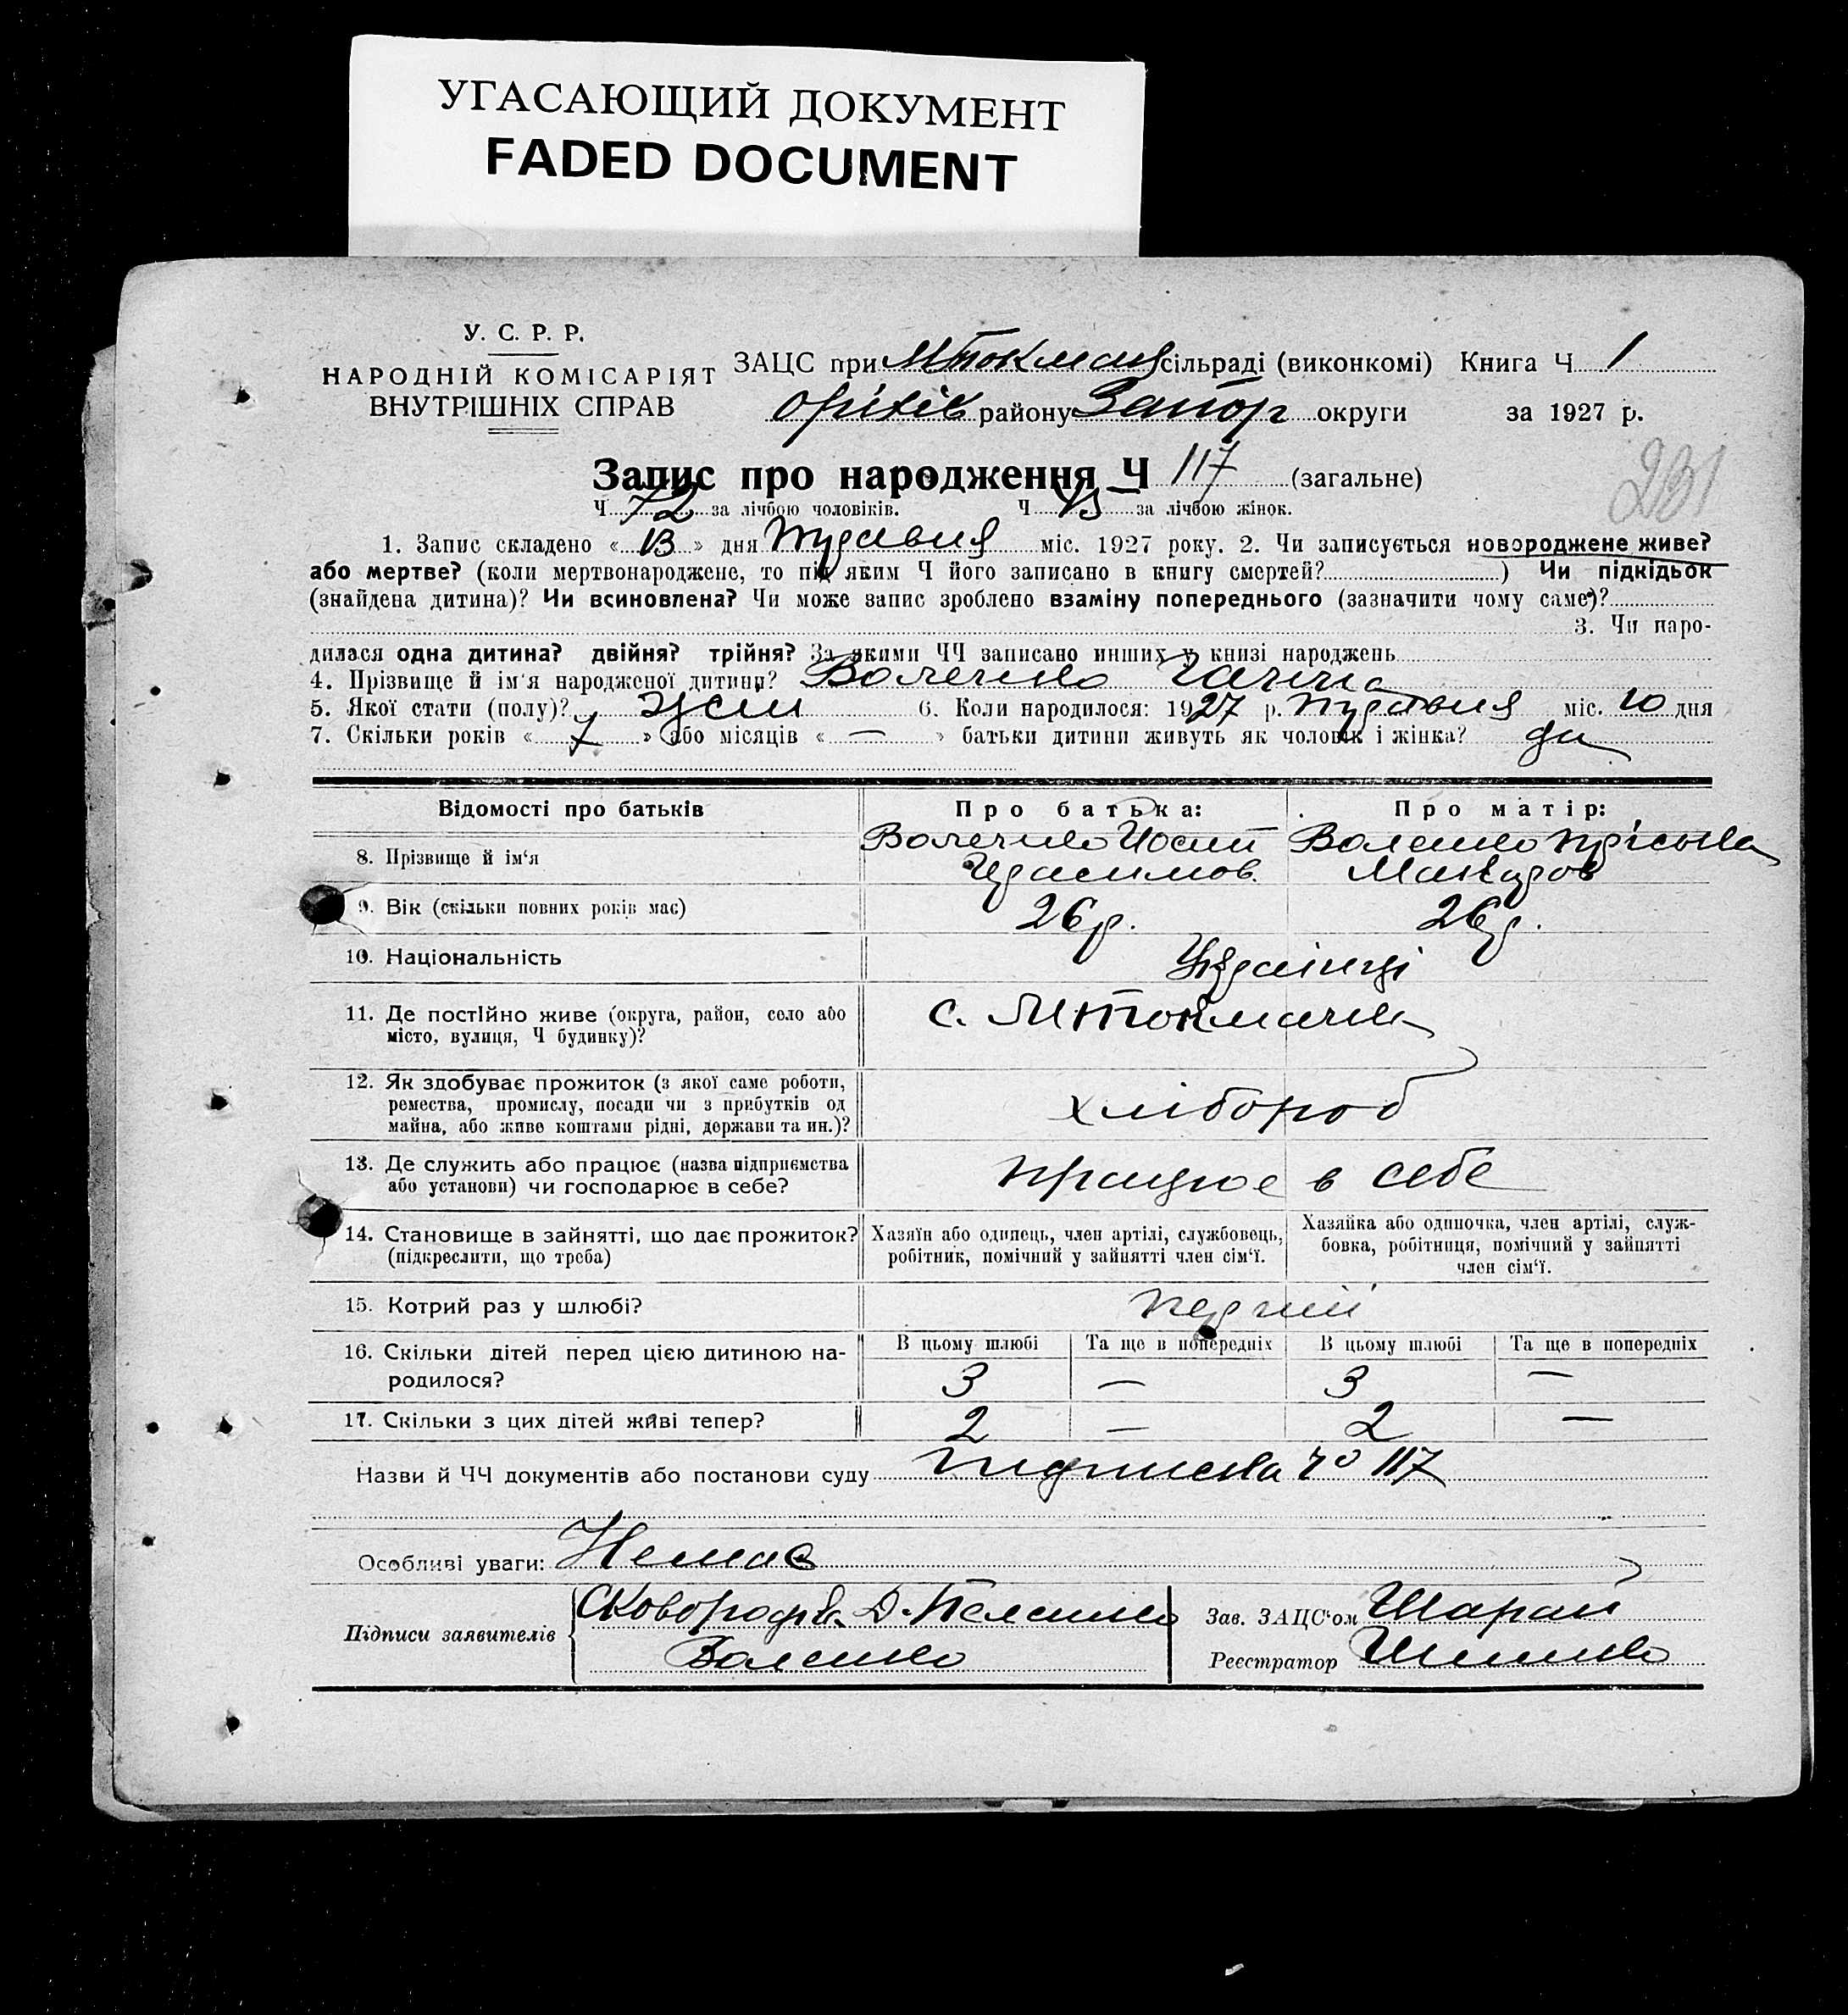 УГАСАЮЩИЙ ДОКУМЕНТ
FADED DOCUMENT
У. С. Р. Р.
НАРОДНІЙ КОМІСАРІЯТ
ВНУТРІШНІХ СПРАВ
ЗАЦС при МТокмач сільраді (виконкомі) Книга Ч 1
Оріхів району Запор округи за 1927 р.
231
Запис про народження Ч 117 (загальне)
Ч 72 за лічбою чоловіків. Ч за лічбою жінок.
1. Запис складено « 13 » дня травня міс. 1927 року. 2. Чи записується новороджене живе?
або мертве? (коли мертвонароджене, то під яким Ч його записано в книгу смертей? ) Чи підкідьок
(знайдена дитина)? Чи всиновлена? Чи може запис зроблено взаміну попереднього (зазначити чому саме)?
3. Чи наро-
дилася одна дитина? двійня? трійня? За якими ЧЧ записано инших у книзі народжень
4. Прізвище й ім'я народженої дитини? Ганна
5. Якої стати (полу)? жен 6. Коли народилося: 1927 р. травня міс. 10 дня
7. Скільки років « 7 » або місяців « — » батьки дитини живуть як чоловік і жінка? да
Відомості про батьків Про батька: Про матір:
8. Прізвище й ім'я Йосип
Макаров
9. Вік (скільки повних років має) 26 р. 26 р.
10. Національність Українці
11. Де постійно живе (округа, район, село або с. МТокмачка
місто, вулиця, Ч будинку)?
12. Як здобуває прожиток (з якої саме роботи,
ремества, промислу, посади чи з прибутків од хлібороб
майна, або живе коштами рідні, держави та ин.)?
13. Де служить або працює (назва підприємства працює в себе
або установи) чи господарює в себе?
14. Становище в зайнятті, що дає прожиток? Хазяїн або одинець, член артілі, службовець, Хазяйка або одиночка, член артілі, служ-
(підкреслити, що треба) робітник, помічний у зайнятті член сім'ї. бовка, робітниця, помічний у зайнятті
член сім'ї.
15. Котрий раз у шлюбі? перший
16. Скільки дітей перед цією дитиною на- В цьому шлюбі Та ще в попередніх В цьому шлюбі Та ще в попередніх
родилося? 3 — 3 —
17. Скільки з цих дітей живі тепер? 2 — 2 —
Назви й ЧЧ документів або постанови суду підписка 117
Особливі уваги: Немає
Підписи заявителів Сковородка Д.
Зав. ЗАЦС'ом Шарай
Реєстратор